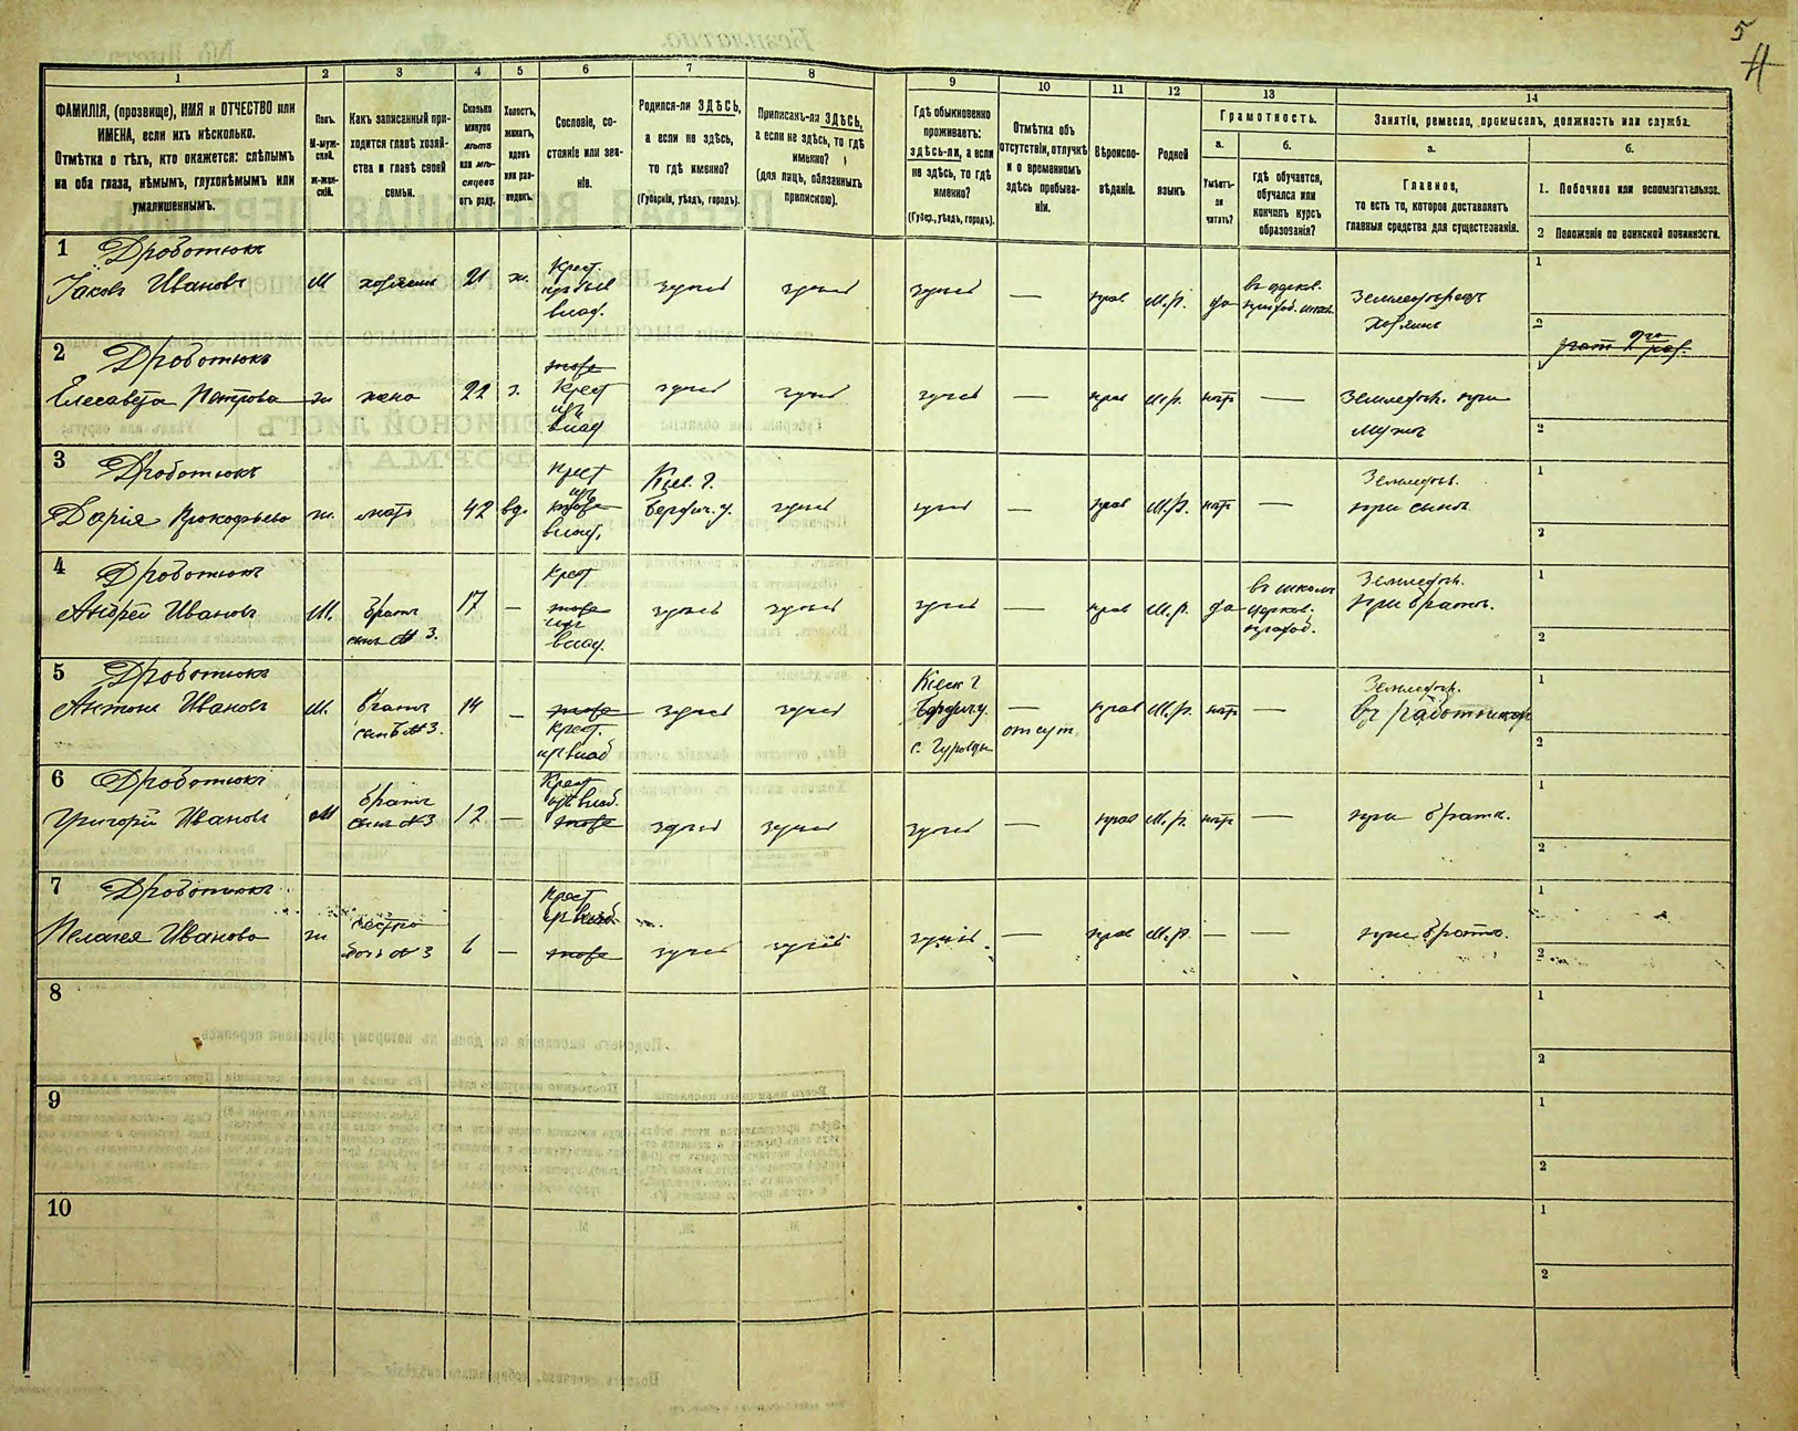 5
4
1
2
3
4
5
6
7
8
9
10
11
12
13
14
ФАМИЛІЯ, (прозвище), ИМЯ и ОТЧЕСТВО или
ИМЕНА, если ихъ нѣсколько.
Отмѣтка о тѣхъ, кто окажется: слѣпымъ
на оба глаза, нѣмымъ, глухонѣмымъ или
умалишеннымъ.
Полъ.
М-муж-
ской.
Ж-жен-
скій.
Какъ записанный при-
ходится главѣ хозяй-
ства и главѣ своей
семьи.
Сколько
минуло
лѣтъ
или мѣ-
сяцевъ
отъ роду.
Холостъ,
женатъ,
вдовъ
или раз-
веденъ.
Сословіе, со-
стояніе или зва-
ніе.
Родился-ли ЗДѢСЬ,
а если не здѣсь,
то гдѣ именно?
(Губернія, уѣздъ, городъ).
Приписанъ-ли ЗДѢСЬ,
а если не здѣсь, то гдѣ
именно?
(для лицъ, обязанныхъ
припискою).
Гдѣ обыкновенно
проживаетъ:
здѣсь-ли, а если
не здѣсь, то гдѣ
именно?
(Губер., уѣздъ, городъ).
Отмѣтка объ
отсутствіи, отлучкѣ
и о временномъ
здѣсь пребыва-
ніи.
Вѣроиспо-
вѣданіе.
Родной
языкъ.
Грамотность.
а.
Умѣетъ-
ли
читать?
б.
гдѣ обучается,
обучался или
кончилъ курсъ
образованія?
Занятіе, ремесло, промыселъ, должность или служба.
а.
Главное,
то есть то, которое доставляетъ
главныя средства для существованія.
б.
1. Побочное или вспомогательное.
2 Положеніе по воинской повинности.
1 Дроботюкъ
Іаковъ Ивановъ М хозяинъ 21 ж. Крест. влад. здѣсь здѣсь здѣсь — прав М.р. да въ церков. приход. школ. Земледѣлецъ хозяинъ
1
2
2 Дроботюкъ
Елесавета Петрова ж жена 22 з. Крест изъ влад здѣсь здѣсь здѣсь — прав М.р. нѣт — Земледѣл. при мужѣ
1
2
3 Дроботюкъ
Дарія Прокофьева ж. мать 42 вд. Крест изъ влад. Кіев. г. Бердич. у. здѣсь здѣсь — прав М.р. нѣт — Земледѣл. при сынѣ
1
2
4 Дроботюкъ
Андрей Ивановъ М. братъ сынъ № 3. 17 — Крест изъ влад. здѣсь здѣсь здѣсь — прав М.р. да въ школѣ церков. приход. Земледѣл. при братѣ.
1
2
5 Дроботюкъ
Антонъ Ивановъ М. братъ сынъ № 3. 14 — Крест. изъ влад здѣсь здѣсь Кіевск г Бердич у. с. — отсут. прав М.р. нѣт — Земледѣл. въ работникахъ
1
2
6 Дроботюкъ
Григорій Ивановъ М братъ сынъ № 3 12 — Крест изъ влад. здѣсь здѣсь здѣсь — прав М.р. нѣт — при братѣ.
1
2
7 Дроботюкъ
Пелагея Иванова ж сестра дочь № 3 6 — Крест изъ влад. здѣсь здѣсь здѣсь — прав М.р. — — при братѣ.
1
2
8
1
2
9
1
2
10
1
2